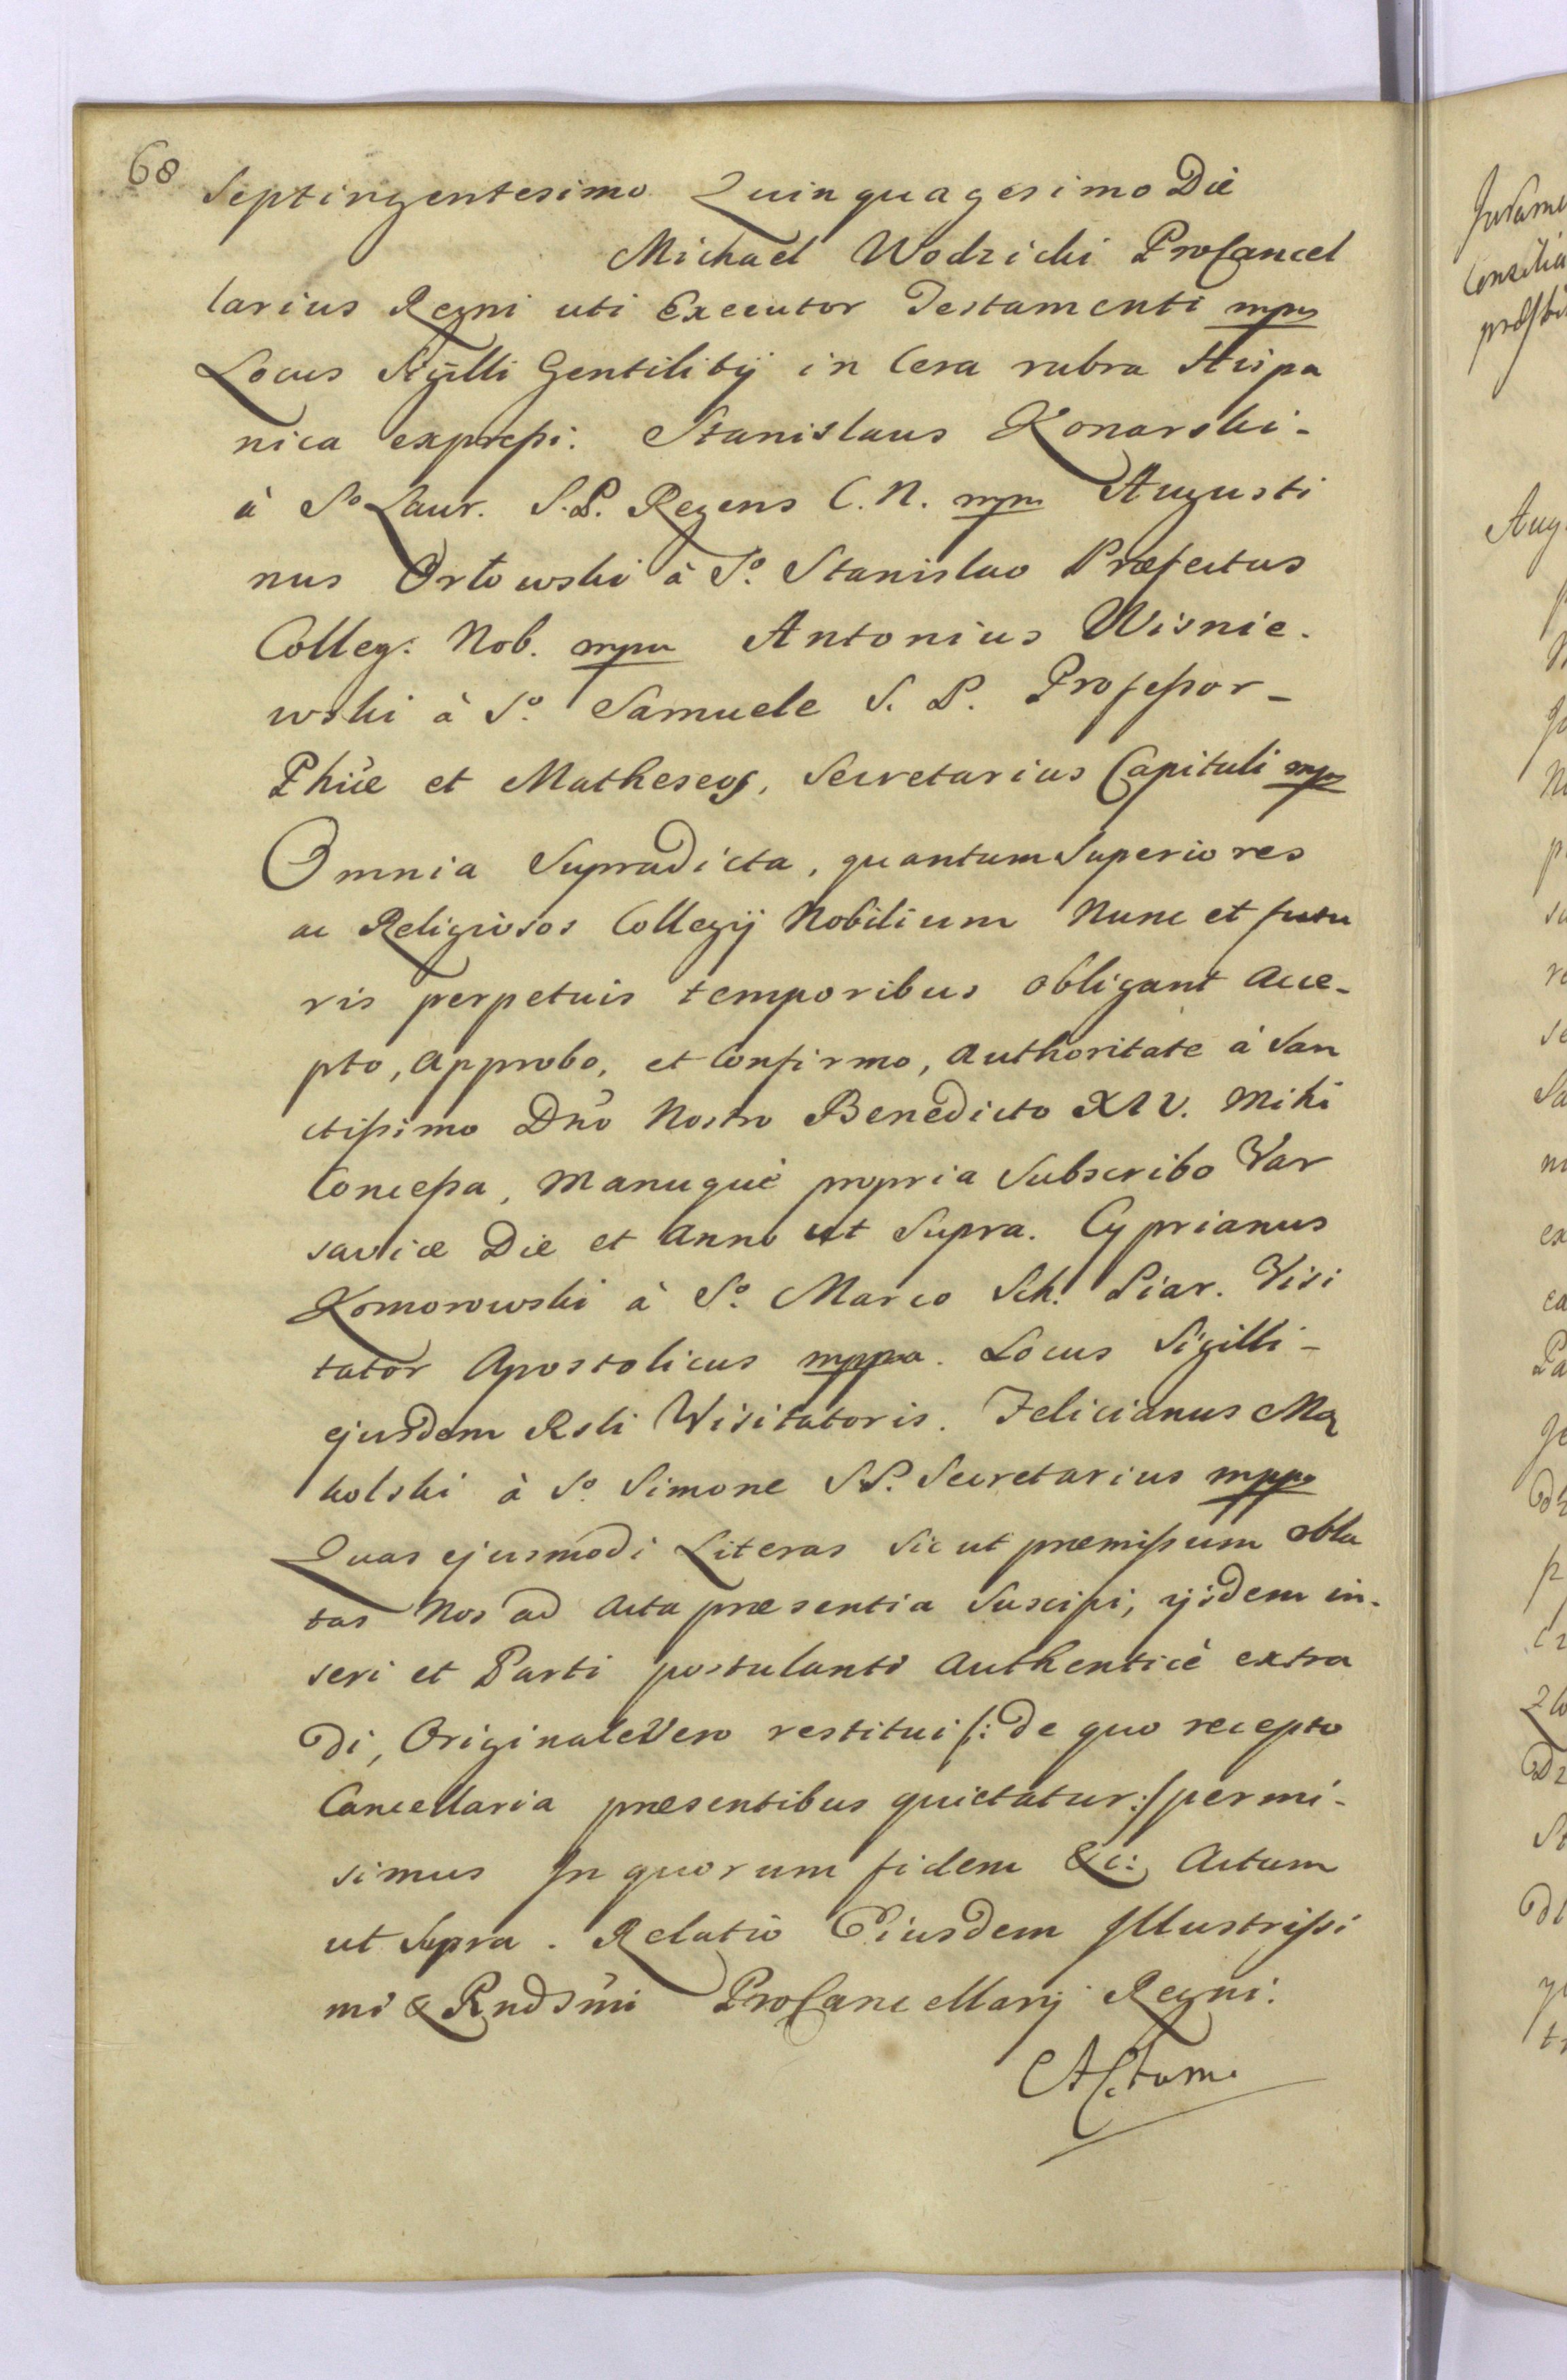 68
Septingentesimo Quinquagesimo Die
Michael Wodzicki ProCancel
larius Regni uti Executor Testamenti mpp
Locus Sigilli Gentilitij in Cera rubra Hispa
nica expressi. Stanislaus Konarski -
à So Laur. S.P. Regens C. N. mpp Augusti
nus Orłowski à So. Stanislao Præfectus
Colleg: Nob. mpp Antonius Wisnie.
wski à So. Samuele S. P. Professor -
Phiæ et Matheseos, Secretarius Capituli mpp
Omnia Supradicta, quantum Superiores
ac Religiosos Collegij Nobilium Nunc et futu
ris perpetuis temporibus obligant acce-
pto, approbo, et Confirmo, authoritate à San
ctissimo Dno Nostro Benedicto XIV. mihi
Concessa, manuque propria Subscribo Var
saviæ Die et Anno ut Supra. Cyprianus
Komorowski à So. Marco Sch. Piar. Visi
tator Apostolicus mppa. Locus Sigilli -
ejusdem Rsti Wisitatoris. Felicianus Ma
kolski à So. Simone S.P. Secretarius mppa
Quas ejusmodi Literas Sic ut præmissum obla
tas Nos ad Acta præsentia Suscipi, ijsdem in-
seri et Parti postulanti Authenticè extra
di, Originale Vero restitui /: de quo recepto
Cancellaria præsentibus quietatur :/ permi-
simus In quorum fidem &c: Actum
ut Supra. Relatio Eiusdem Illustrissi
mi & Rndsmi ProCancellarij Regni.
Actum.
Consilia
Aug.